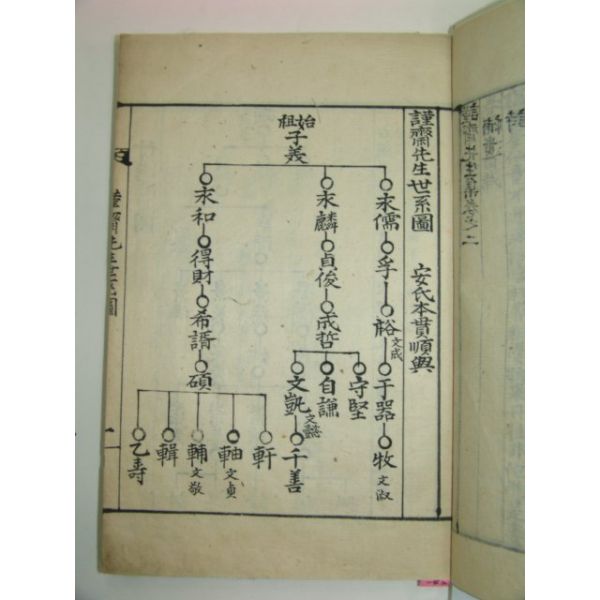 謹齋先生世系圖
安氏本貫順興
始祖
子美
永儒
孚
裕 文成
于器
牧 文淑
永麟
貞俊
成哲
守堅
自謙
文凱 文懿
千善
永和
得財
希諝
碩
軒
軸 文貞
輔 文敬
輯
乙壽
謹齋先生世系圖
一